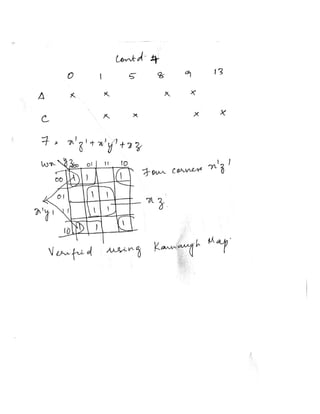 Contd. 4
0 1 5 8 9 13
A x x x x
C x x x x
F = x'z' + x'y' + xz
wx yz 00 01 11 10
00 1 1 1 Four corners x'z'
01 1 1 xz
x'y' 11 1 1
10 1 1 1
Verified using Karnaugh Map.